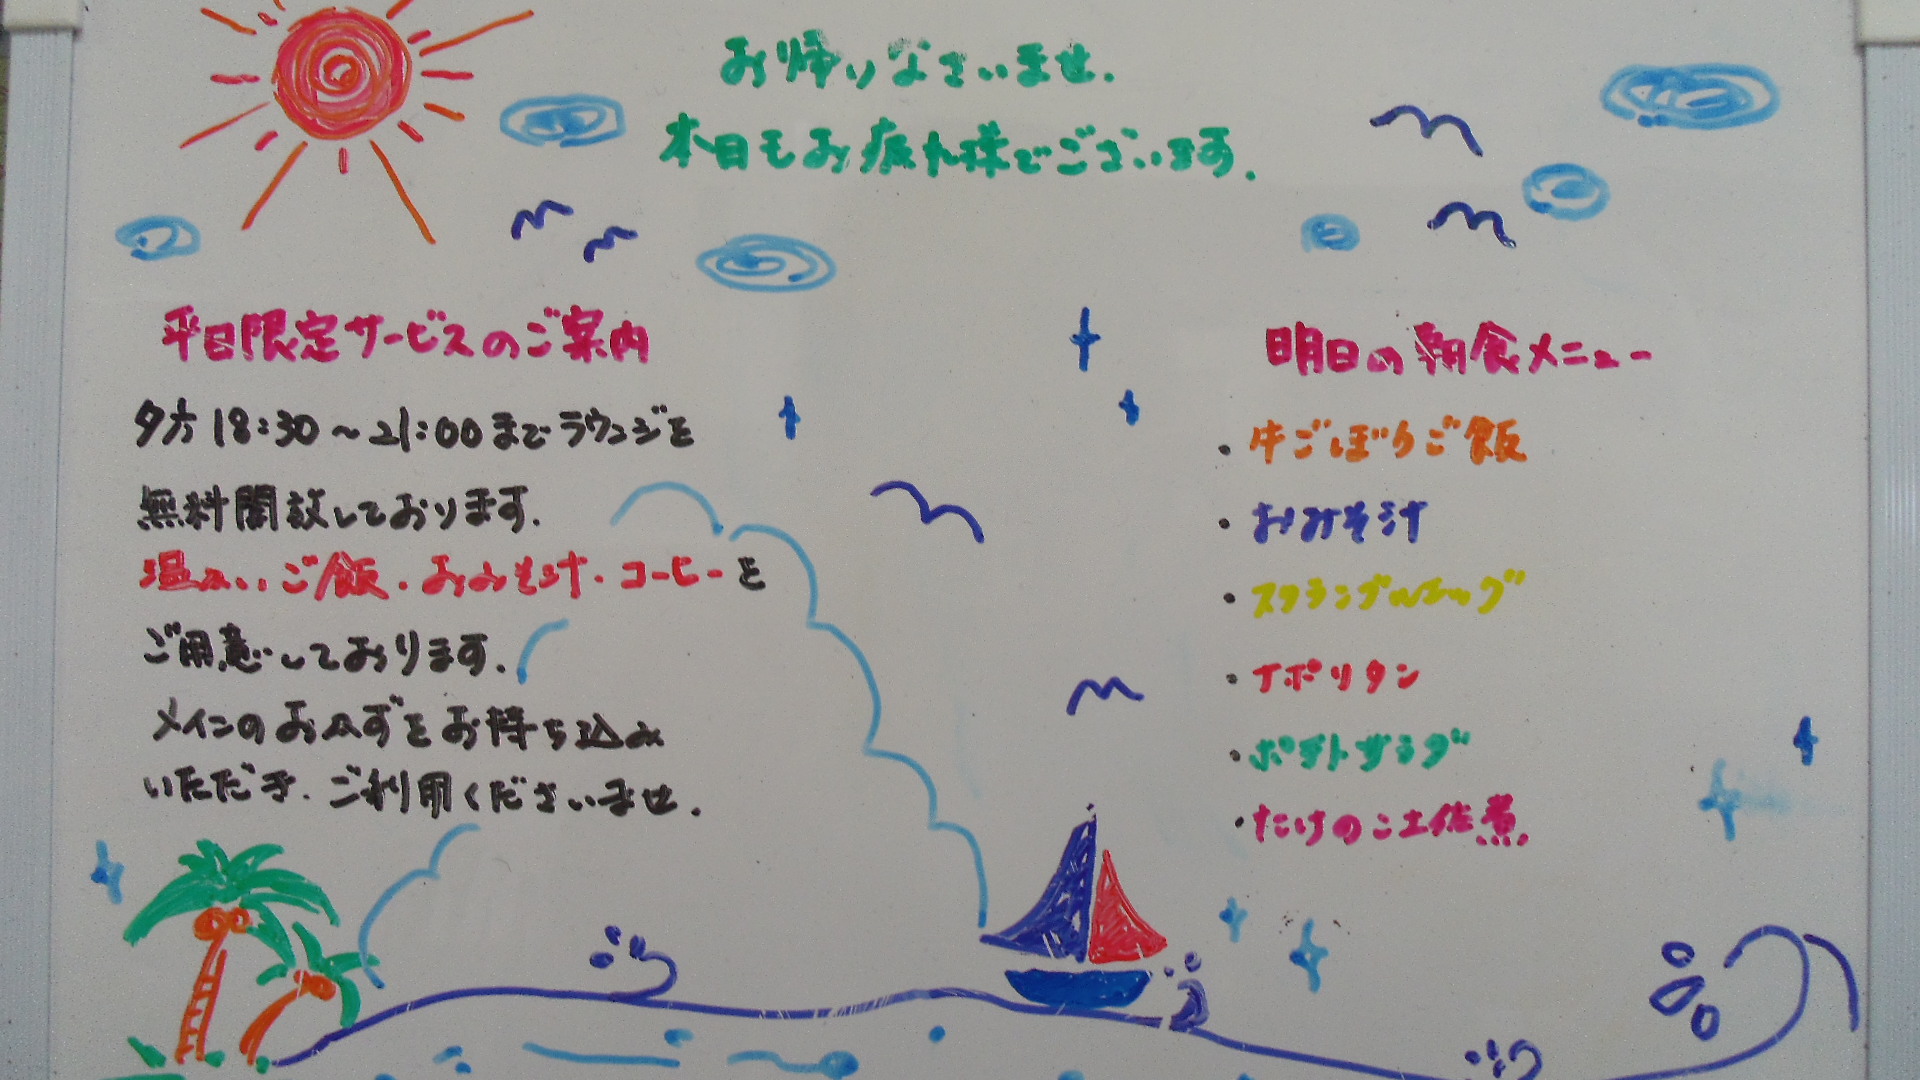 お帰りなさいませ.
本日もお疲れ様でございます.
平日限定サービスのご案内
夕方18:30～21:00までラウンジを
無料開放しております.
温かいご飯・おみそ汁・コーヒーを
ご用意しております.
メインのおかずをお持ち込み
いただき.ご利用くださいませ.
明日の朝食メニュー
・牛ごぼうご飯
・おみそ汁
・スクランブルエッグ
・ナポリタン
・ポテトサラダ
・たけのこ土佐煮